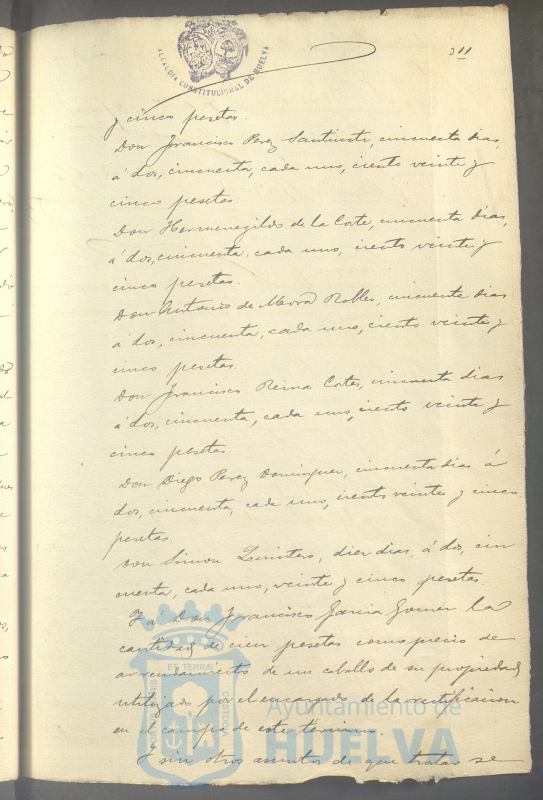 ALCALDIA CONSTITUCIONAL DE HUELVA
311
y cinco pesetas.
Don Francisco Perez Santiuste, cincuenta dias,
á dos, cincuenta, cada uno, ciento veinte y
cinco pesetas.
Don Hermenegildo de la Corte, cincuenta dias,
á dos, cincuenta, cada uno, ciento veinte y
cinco pesetas.
Don Antonio de Mora Robles, cincuenta dias
á dos, cincuenta, cada uno, ciento veinte y
cinco pesetas.
Don Francisco Reina Cortes, cincuenta dias
á dos, cincuenta, cada uno, ciento veinte y
cinco pesetas.
Don Diego Perez Dominguez, cincuenta dias á
dos, cincuenta, cada uno, ciento veinte y cinco
pesetas.
Don Simon Quintero, diez dias, á dos, cin
cuenta, cada uno, veinte y cinco pesetas.
Y a Don Francisco Garcia Gomez la
cantidad de cien pesetas como precio de
arrendamiento de un caballo de su propiedad
utilizado por el encargado de la rectificacion
en el campo de este termino.
Y sin otros asuntos de que tratar se
ET TERRÆ
Ayuntamiento de
HUELVA